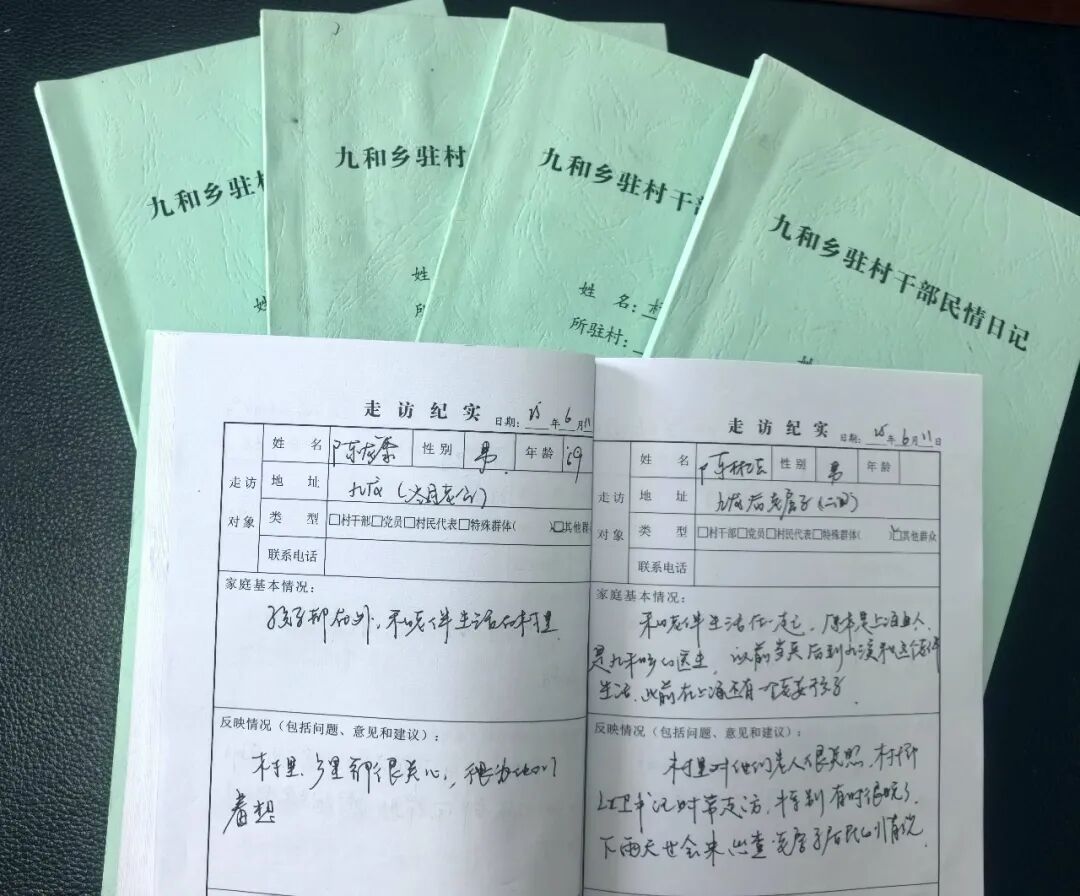 九和乡驻村
九和乡驻村
姓
所
九和乡驻村干部
姓 名:
所驻村:
九和乡驻村干部民情日记
姓
走访纪实
日期: 25 年 6 月 11
姓 名 陈 性别 男 年龄 69
走访对象
地 址
类 型 □村干部□党员□村民代表□特殊群体( )□其他群
联系电话
家庭基本情况:
孩子都在外,和老伴生活在村里
反映情况(包括问题、意见和建议):
村里、乡里都很关心,很为他们
着想
走访纪实
日期: 25 年 6 月 11 日
姓 名 陈 性别 男 年龄
走访对象
地 址 后老房子
类 型 □村干部□党员□村民代表□特殊群体( )□其他群众
联系电话
家庭基本情况:
和老伴生活在一起,原来是上海人,
是九和的医生,以前当兵后到九 和这个老伴
生活,以前在上海还有一个 孩子
反映情况(包括问题、意见和建议):
村里对他们老人很关照,村
书记时常走访,特别有时很晚了,
下雨天也会来 查老房子居民的情况